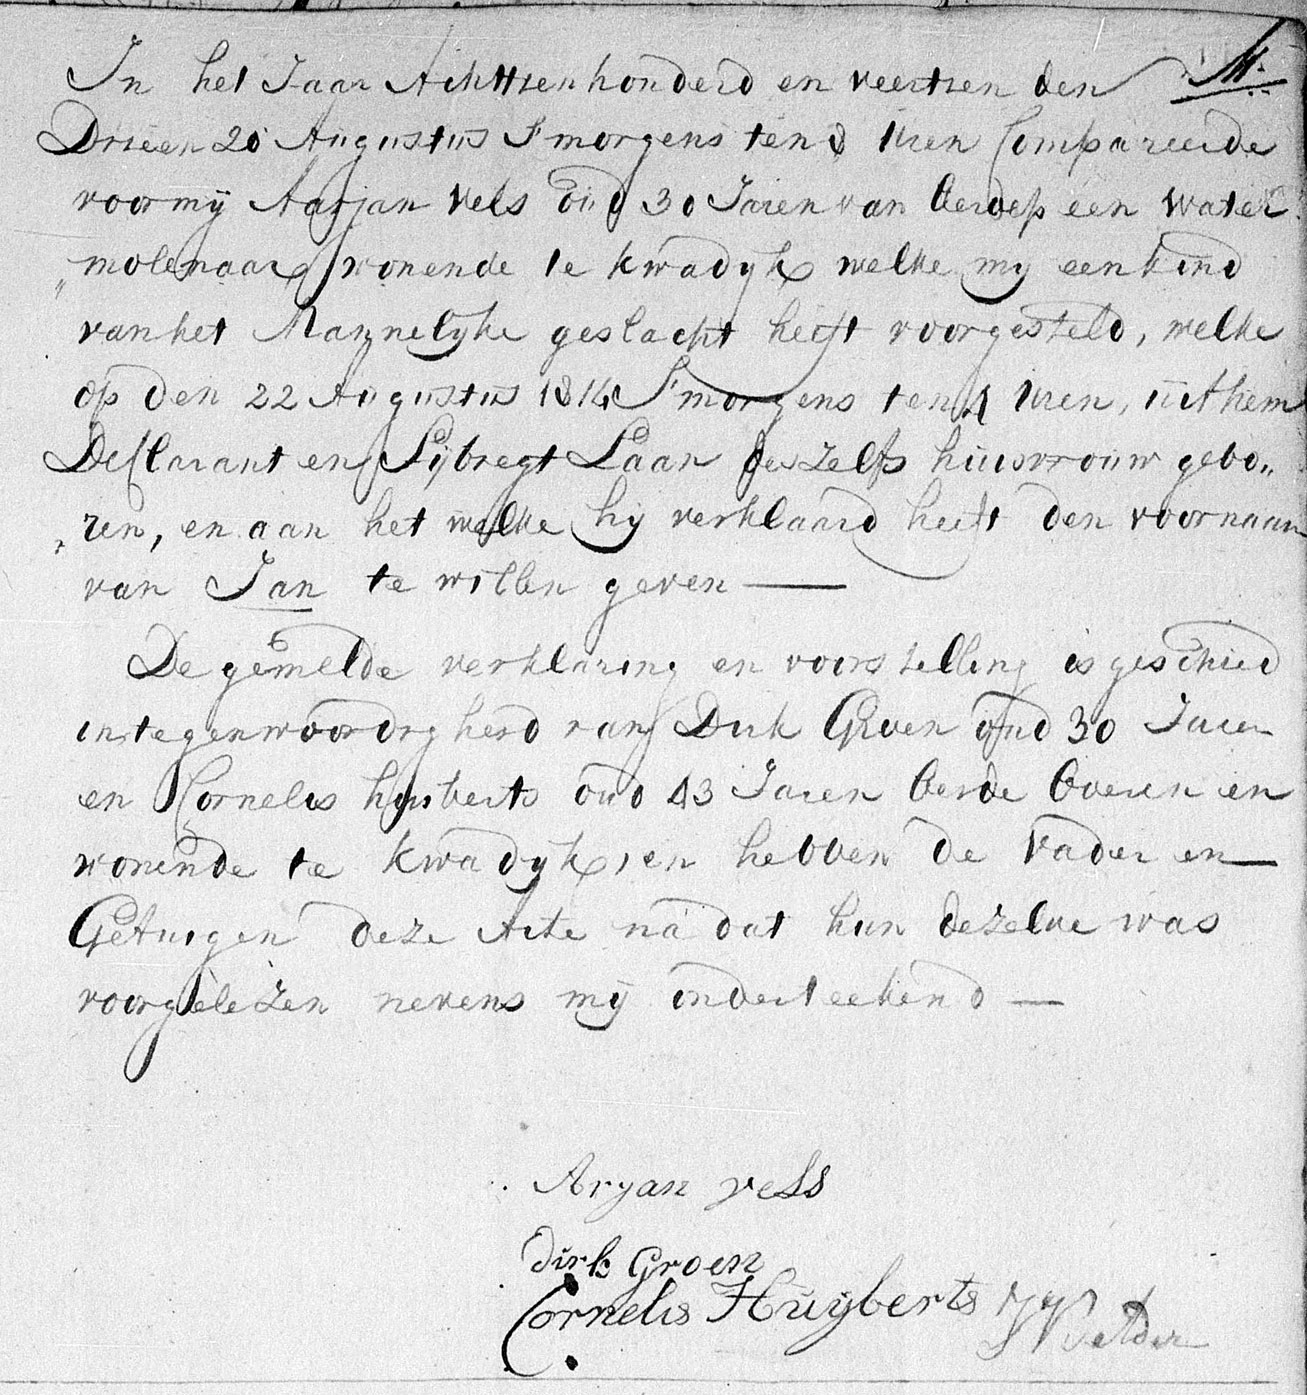 In het Jaar Achttienhonderd en veertien den M.
Drieen 20 Augustus S'morgens ten 8 Uren Compareerde
voor mij Aarjan Vels oud 30 Jaren van beroep een water
molenaar wonende te Kwadyk welke my een kind
van het Mannelyke geslacht heeft voorgesteld, welke
op den 22 Augustus 1814 S'morgens ten 4 Uren, uit hem
Declarant en Sijbregt Laan deszelfs huisvrouw gebo„
„ren, en aan het welke hij verklaard heeft den voornaam
van Jan te willen geven —
De gemelde verklaring en voorstelling is geschied
in tegenwoordigheid van Dirk Groen oud 30 Jaren
en Cornelis huiberts oud 43 Jaren beide boeren en
wonende te Kwadyk, en hebben de Vader en
Getuigen deze Acte na dat hun dezelve was
voorgelezen nevens mij onderteekend —
Aryan vels
dirk Groen
Cornelis Huijberts